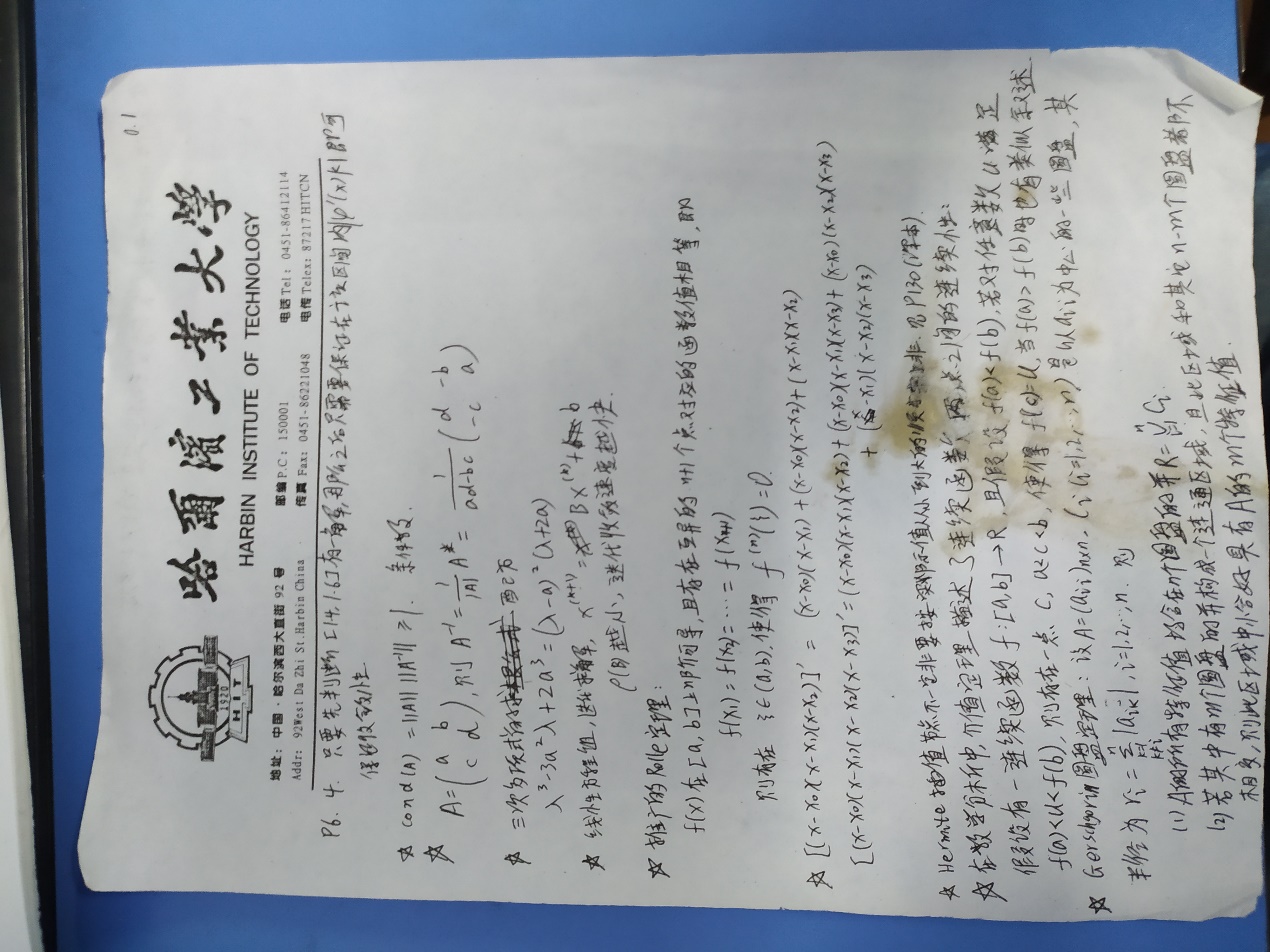 0.1
1920
HIT
哈爾濱工業大學
HARBIN INSTITUTE OF TECHNOLOGY
地址：中国·哈尔滨西大直街 92 号 邮编 P.C：150001 电话 Tel：0451-86412114
Addr：92West Da Zhi St.Harbin China 传真 Fax：0451-86221048 电传 Telex：87217HITCN
P6. 4. 只要先判断[1.4,1.6]有一解,那么之后只需要保证在于该区间内|φ'(x)|<1即可
保证收敛性
☆ cond(A) = ||A|| ||A⁻¹|| ≥1. 条件数.
☆ A=(a b; c d), 则 A⁻¹ = 1/|A| A* = 1/(ad-bc) (d -b; -c a)
☆ 三次多项式的 配方
λ³-3a²λ+2a³=(λ-a)²(λ+2a)
☆ 线性方程组,迭代求解, x^(k+1) = Bx^(k) + b
ρ(B)越小, 迭代收敛速度越快.
☆ 推广的Rolle定理:
f(x)在[a,b]上n阶可导,且存在互异的n+1个点对应的函数值相等,即
f(x₁)=f(x₂)=⋯=f(xₙ₊₁)
则存在 ξ∈(a,b),使得 f^(n)(ξ)=0.
☆ [(x-x₀)(x-x₁)(x-x₂)]' = (x-x₀)(x-x₁)+(x-x₀)(x-x₂)+(x-x₁)(x-x₂)
[(x-x₀)(x-x₁)(x-x₂)(x-x₃)]'=(x-x₀)(x-x₁)(x-x₂)+(x-x₀)(x-x₁)(x-x₃)+(x-x₀)(x-x₂)(x-x₃)
+(x-x₁)(x-x₂)(x-x₃)
☆ Hermite插值节点不一定非要按实际值从小到大的顺序 见P130(课本).
☆ 在数学分析中,介值定理描述了连续函数两点之间的连续性:
假设有一连续函数 f:[a,b]→R, 且假设 f(a)<f(b),若对任意数 u 满足
f(a)<u<f(b), 则存在一点 c, a<c<b, 使得 f(c)=u,当f(a)>f(b)时也有类似叙述.
☆ Gerschgorin圆盘定理: 设A=(aᵢⱼ)n×n, Cᵢ(i=1,2,⋯,n)是以aᵢᵢ为中心的一些圆盘,其
半径为 rᵢ=∑(k=1,k≠i)ⁿ|aᵢₖ|, i=1,2,⋯,n. 则
(1) A的所有特征值均含在n个圆盘的并R=∪(i=1)ⁿ Cᵢ.
(2) 若其中有m个圆盘的并构成一个连通区域, 且此区域和其它n-m个圆盘都不
相交,则此区域中恰好具有A的m个特征值.